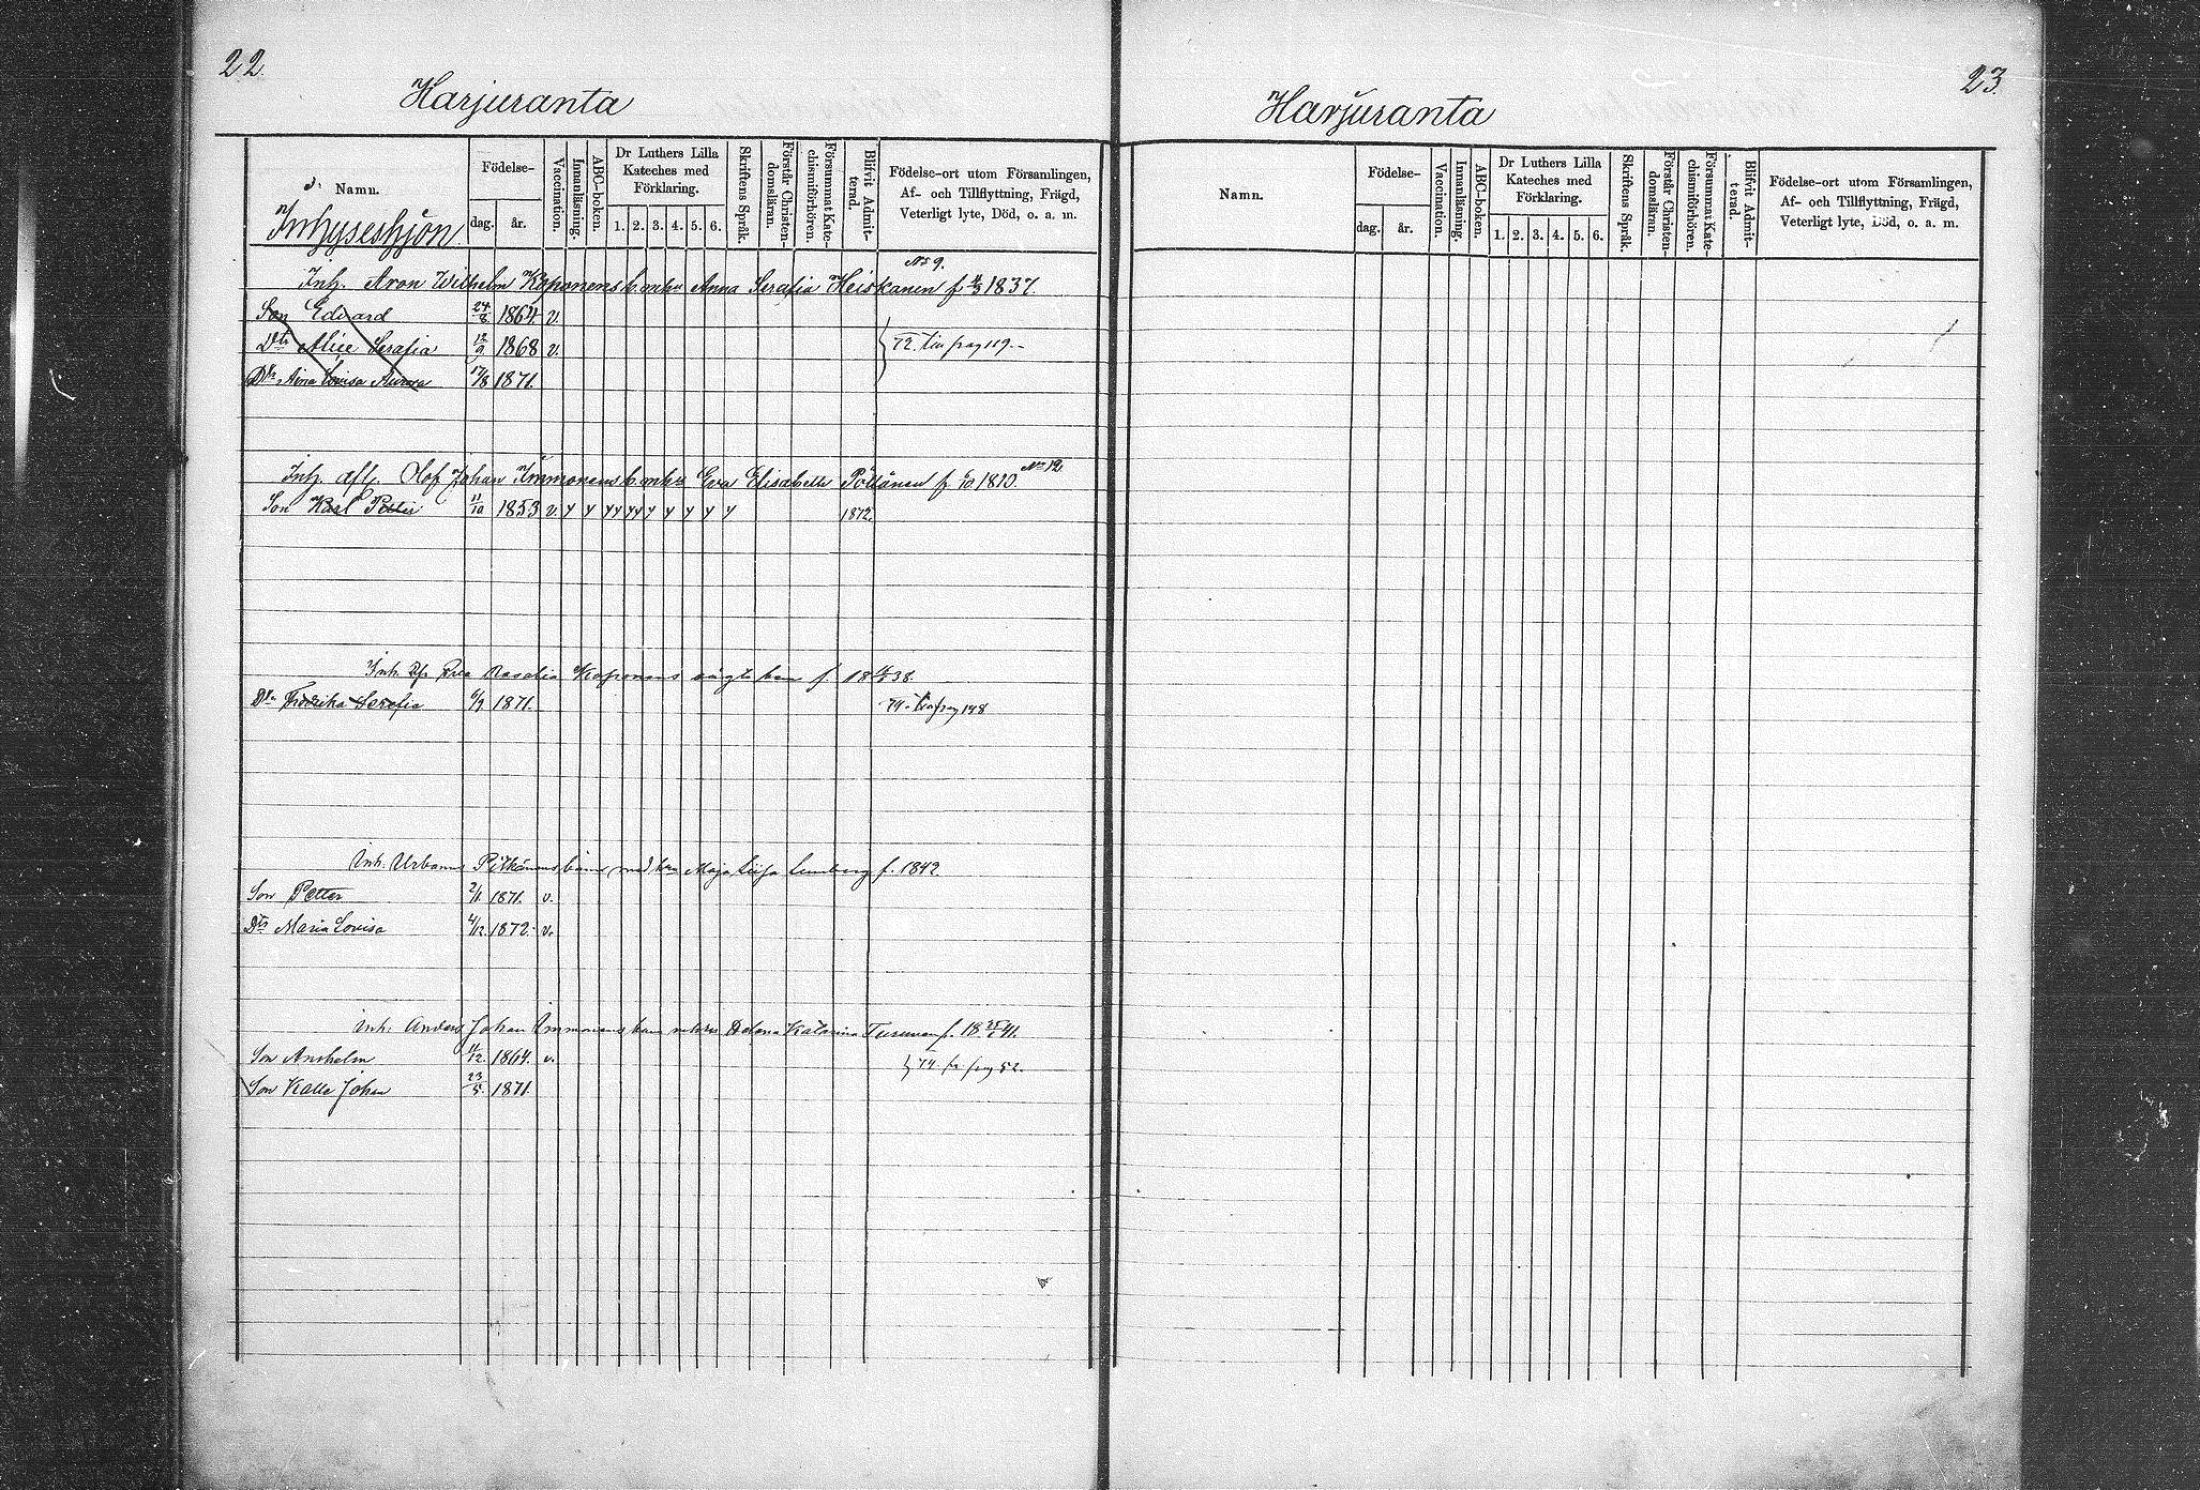 22.
Harjuranta
Namn.
Inhyseshjon
Födelse-
dag.
år.
Vaccination.
Innanläsning.
ABC-boken.
Dr Luthers Lilla
Kateches med
Förklaring.
1. 2. 3. 4. 5. 6.
Skriftens Språk.
Förstår Christen-
domsläran.
Försummat Kate-
chismiförhören.
Blifvit Admit-
terad.
Födelse-ort utom Församlingen,
Af- och Tillflyttning, Frägd,
Veterligt lyte, Död, o. a. m.
No 9.
Inh. Aron Wilhelm Kaponens b. m hu Anna Serafia Heiskanen f 1837.
Son Edvard 24/8 1864. v.
Dtr Alice Serafia 12/9 1868 v. 72. 119.
Dtr Aina Lovisa Aurora 17/8 1871.
No 12.
Inh. afl. Olof Johan Immonens b. m hu Eva Elisabeth Pöllänen f 1810.
Son Karl Petter 11/10 1853 v. y y yy yy y y y y y 1872.
Inh. Rosalia Kaponens f. 18 38.
Dtr Fredrika Serafia 6/9 1871. 148
Inh. Urbanus Pitkänens barn med hu Maja Liisa f. 1842.
Son Petter 2/1 1871. v.
Dtr Maria Lovisa 4/12. 1872. v.
Inh. Anders Johan Immonens barn m hu Helena Katarina Turunen f. 18 25/1 41.
Son Anshelm 11/12. 1864. v. 74. pag 52.
Son Kalle Johan 23/5. 1871.
23.
Harjuranta
Namn.
Födelse-
dag.
år.
Vaccination.
Innanläsning.
ABC-boken.
Dr Luthers Lilla
Kateches med
Förklaring.
1. 2. 3. 4. 5. 6.
Skriftens Språk.
Förstår Christen-
domsläran.
Försummat Kate-
chismiförhören.
Blifvit Admit-
terad.
Födelse-ort utom Församlingen,
Af- och Tillflyttning, Frägd,
Veterligt lyte, Död, o. a. m.